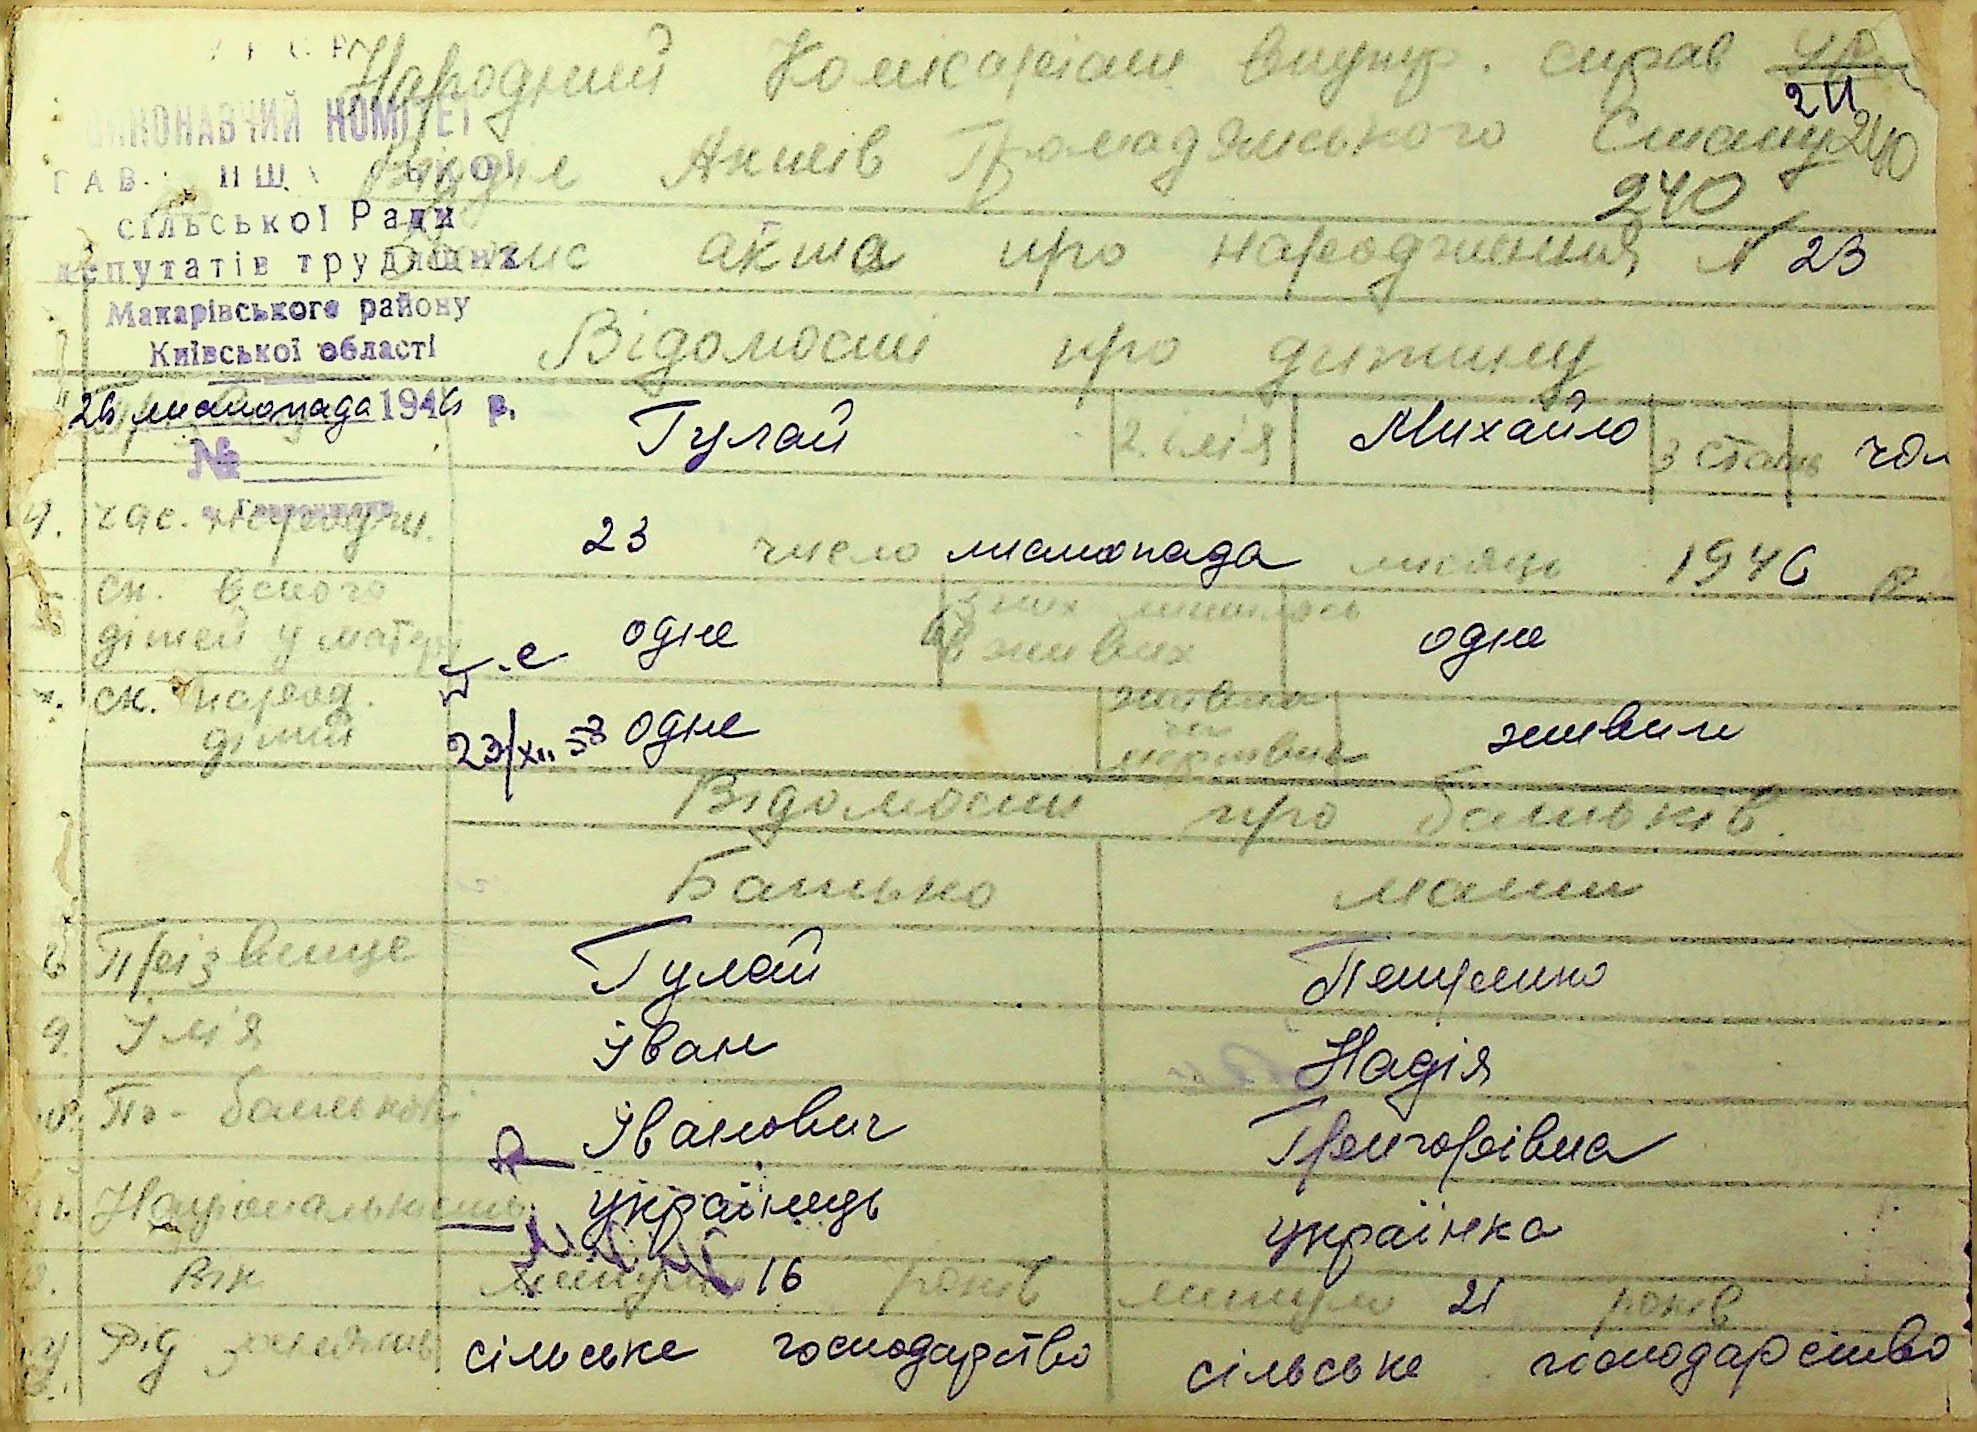 Народний Комісаріат внутр. справ
ВИКОНАВЧИЙ КОМІТЕТ
211
Відділ Актів Громадянського Стану 240
240
сільської Ради
Запис акта про народження № 23
депутатів трудящих
Макарівського району
Київської області
Відомості про дитину
26 листопада 1946 р.
Гулай 2. ім'я Михайло 3 стать чол
№
4. час. народжн. 23 число листопада місяць 1946 р.
ск. всього дітей у матері одне з них лишилось в живих одне
ск. народ. дітей одне живим чи мертвим живим
23/XII 53
Відомості про батьків
Батько мати
8 Прізвище Гулай Петренко
9. Ім'я Іван Надія
10. По-батькові Іванович Григорівна
Національність українець українка
Вік минуло 16 років минуло 21 років
Рід занять сільське господарство сільське господарство